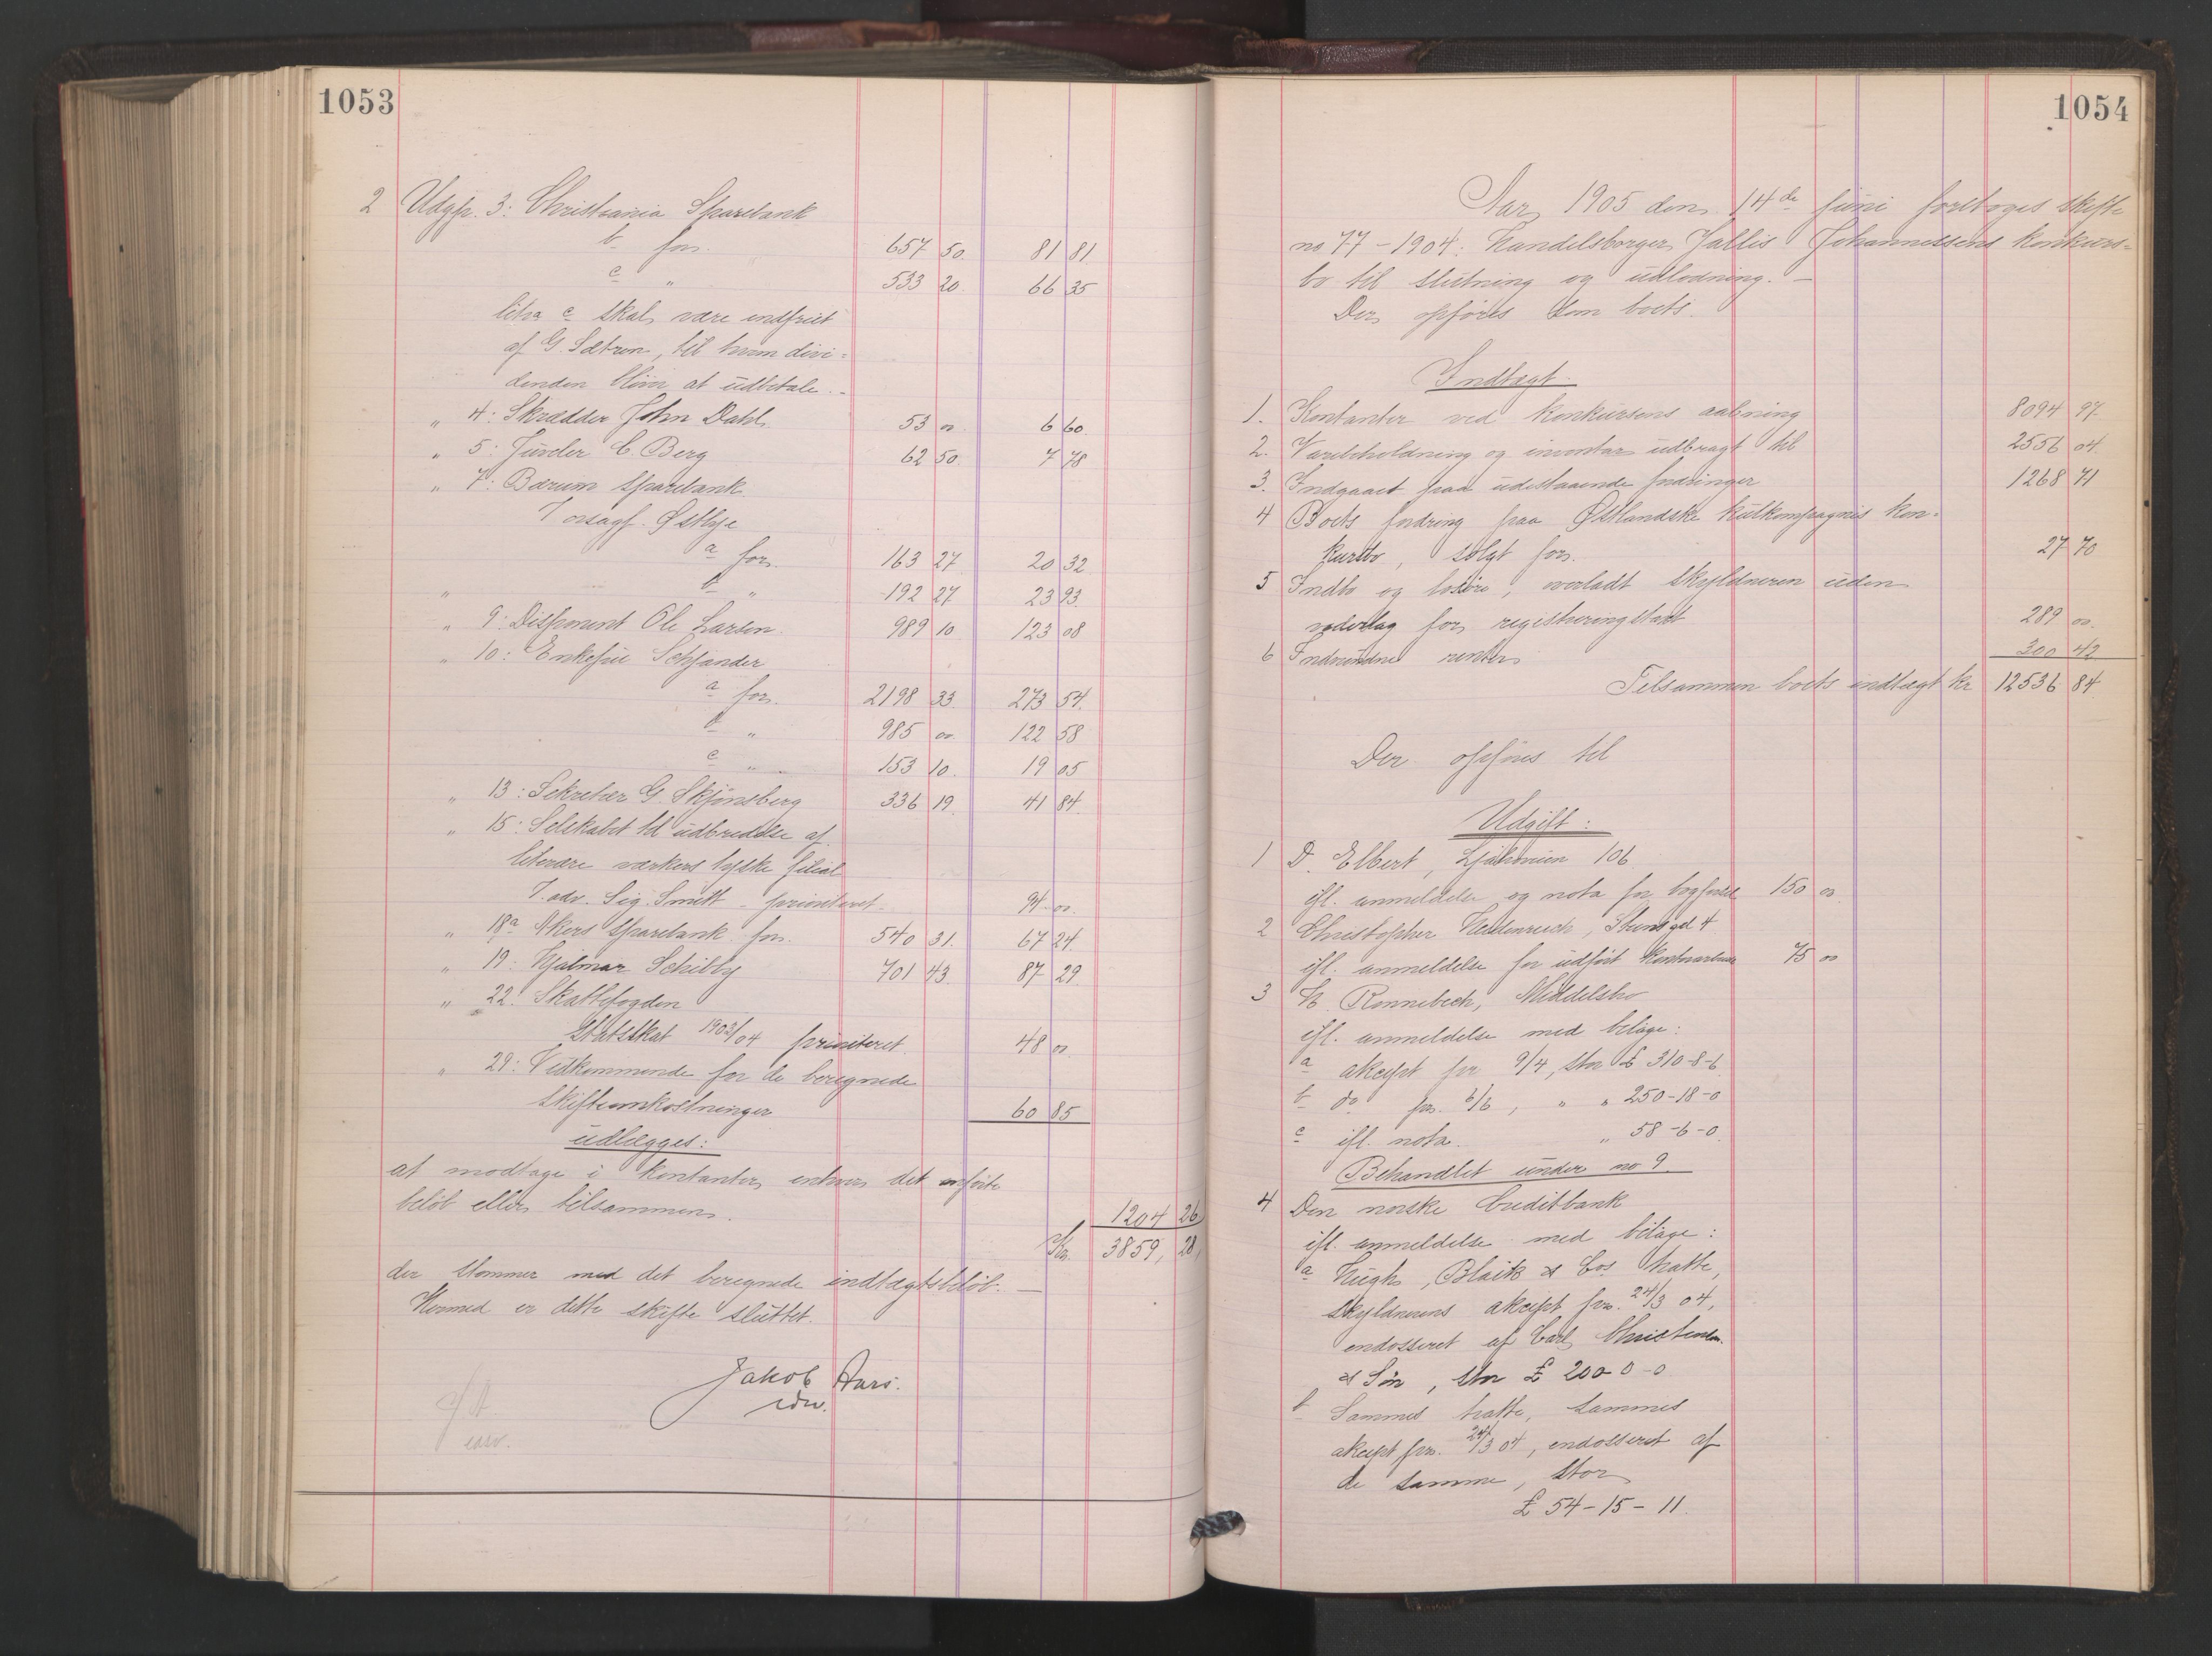 1053
2 Udgp. 3: Christiania Sparebank
b for. 657 50. 81 81
c " 533 20. 66 35
litra c skal være indfriet
af G. Sætren, til hvem divi=
denden bliver at udbetale. -
" 4: Skrædder John Dahl. 53 00 6 60.
" 5: Juveler C. Berg 62 50. 7 78
" 7: Bærum Sparebank.
T. orsagf. Østbye
a for. 163 27 20 32
" b " 192 27 23 93.
" 9: Disponent Ole Larsen. 989 10 123 08
" 10: Enkefru Schjander
a for. 2198 33. 273 54.
b " 985 00. 122 58
c " " 153 10. 19 05
" 13: Sekretær G. Skjønsberg 336 19. 41 84.
" 15: Selskabet til udbredelse af
literære værkers tyske filial
T. adv. Sig. Smitt - prioriteret - 94 00.
" 18a Akers Sparebank for. 540 31. 67 24.
" 19: Hjalmar Schibby 701 43. 87 29.
" 22: Skattefogden
Statsskat 1903/04 prioriteret. 48 00.
" 29: Vedkommende for de beregnede
skifteomkostninger 60 85
udlægges:
at modtage i kontanter enhver det anførte
beløb eller tilsammen. 1204 26
Kr. 3859, 28,
der stemmer med det beregnede indtægtsbeløb. -
Hermed er dette skifte sluttet.
Jakob Aars.
cdw.
1054
Aar 1905 den 14de juni foretoges skifte
no 77 - 1904: Handelsborger Jallis Johannessens konkurs=
bo til slutning og udlodning. -
Der opføres som boets.
Indtægt.
1. Kontanter ved konkursens aabning 8094 97.
2. Varebeholdning og inventar udbragt til 2556 04.
3. Indgaaet paa udestaaende fordringer 1268 71
4 Boets fordring paa Østlandske kulkompagnis kon=
kursbo, solgt for. 27 70
5 Indbo og løsøre, overladt skyldneren uden
vederlag for registreringstaxt 289 00.
6 Indvundne renter 300 42
Tilsammen boets indtægt kr 12536 84.
Der opføres til
Udgift:
1 D. Elbert, Ljabroveien 106
ifl. anmeldelse og nota for bogførsel 150 00.
2 Christopher Heidenreich, Stensgd 4
ifl. anmeldelse for udført kontorarbeide 75 00
3 H. Ronnebeck, Middelsbro
ifl. anmeldelse med bilage:
a akcept pr 9/4, stor £ 310-8-6
b do pr. 6/6, " " 250-18-0
c ifl. nota. " 58-6-0.
Behandlet under no 9.
4 Den norske Creditbank
ifl. anmeldelse med bilage:
a Hugh, Blaik & Cos tratte,
skyldnerens akcept pr. 24/3 04,
endosseret af Carl Christensen
& Søn, stor £ 200-0-0
b Sammes tratte, sammes
akcept pr. 24/3 04, endosseret af
de samme, stor
£ 54-15-11.